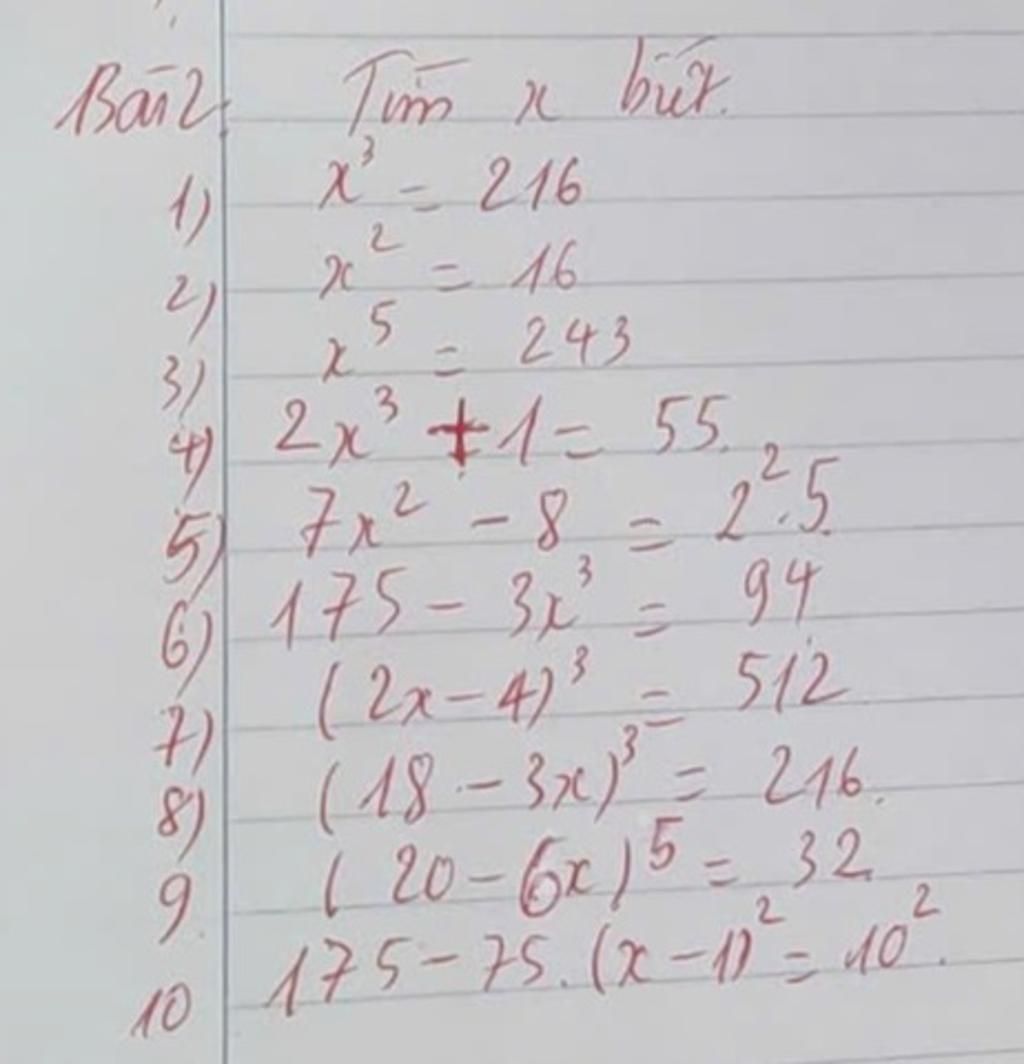 Bài 2. Tìm x biết.
1) x³ = 216
2) x² = 16
3) x⁵ = 243
4) 2x³ + 1 = 55.
5) 7x² - 8 = 2².5.
6) 175 - 3x³ = 94
7) (2x - 4)³ = 512
8) (18 - 3x)³ = 216.
9. (20 - 6x)⁵ = 32.
10 175 - 75.(x - 1)² = 10².